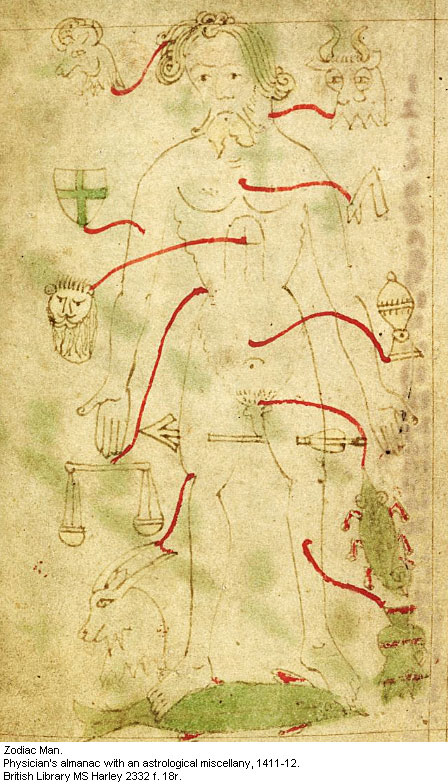 Zodiac Man.
Physician's almanac with an astrological miscellany, 1411-12.
British Library MS Harley 2332 f. 18r.